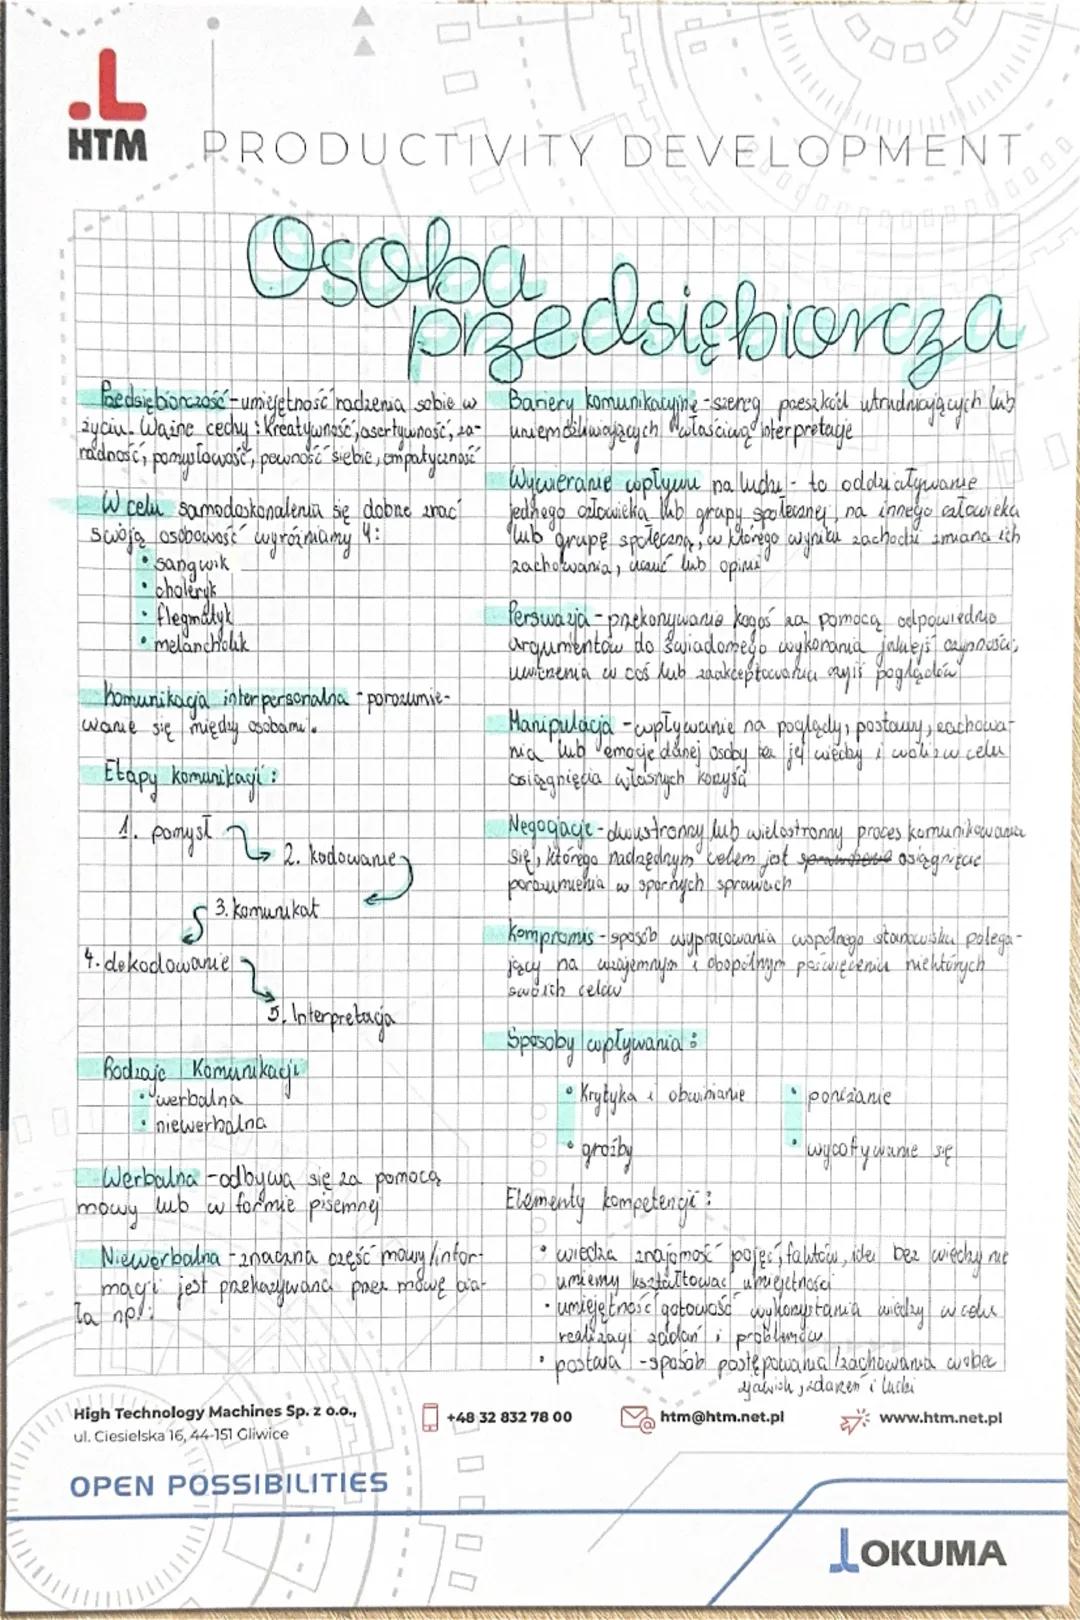 .L
HTM
PRODUCTIVITY DEVELOPMENT
Osoba
przedsiębiorcza
Przedsiębiorczość - umiejętność radzenia sobie w
życiu. Ważne cechy: Kreatywność, asertywność, za-
radność, pomysłowość, pewność siebie, empatyczność
W celu samodoskonalenia się dobrze znać
swoją osobowość wyróżniamy 4:
• sangwik
• choleryk
• flegmatyk
• melancholik
Komunikacja interpersonalna - porozumie-
wanie się między osobami.
Etapy komunikacji:
1. pomysł
2. kodowanie
3. komunikat
4. dekodowanie
5. Interpretacja
Rodzaje Komunikacji
• werbalna
• niewerbalna
Werbalna - odbywa się za pomocą
mowy lub w formie pisemnej
Niewerbalna - znaczna część mowy/infor-
macji jest przekazywana przez mowę cia-
ła np.:
Bariery komunikacyjne - szereg przeszkód utrudniających lub
uniemożliwiających właściwą interpretację
Wywieranie wpływu na ludzi - to oddziaływanie
jednego człowieka lub grupy społecznej na innego człowieka
lub grupę społeczną, w którego wyniku zachodzi zmiana ich
zachowania, uczuć lub opinii
Perswazja - przekonywanie kogoś za pomocą odpowiednio
argumentów do świadomego wykonania jakiejś czynności,
uwierzenia w coś lub zaakceptowania czyiś poglądów
Manipulacja - wpływanie na poglądy, postawy, zachowa-
nia lub emocje danej osoby bez jej wiedzy i woli w celu
osiągnięcia własnych korzyści
Negocjacje - dwustronny lub wielostronny proces komunikowania
się, którego nadrzędnym celem jest osiągnięcie
porozumienia w spornych sprawach
Kompromis - sposób wypracowania wspólnego stanowiska polega-
jący na wzajemnym i obopólnym poświęceniu niektórych
swoich celów
Sposoby wpływania:
• Krytyka i obwinianie • poniżanie
• groźby • wycofywanie się
Elementy kompetencji:
• wiedza znajomość pojęć, faktów, idei bez wiedzy nie
umiemy kształtować umiejętności
• umiejętność gotowość wykorzystania wiedzy w celu
realizacji zadań i problemów
• postawa - sposób postępowania/zachowania wobec
zjawisk, zdarzeń i ludzi
High Technology Machines Sp. z o.o.,
ul. Ciesielska 16, 44-151 Gliwice
+48 32 832 78 00
htm@htm.net.pl
www.htm.net.pl
OPEN POSSIBILITIES
OKUMA